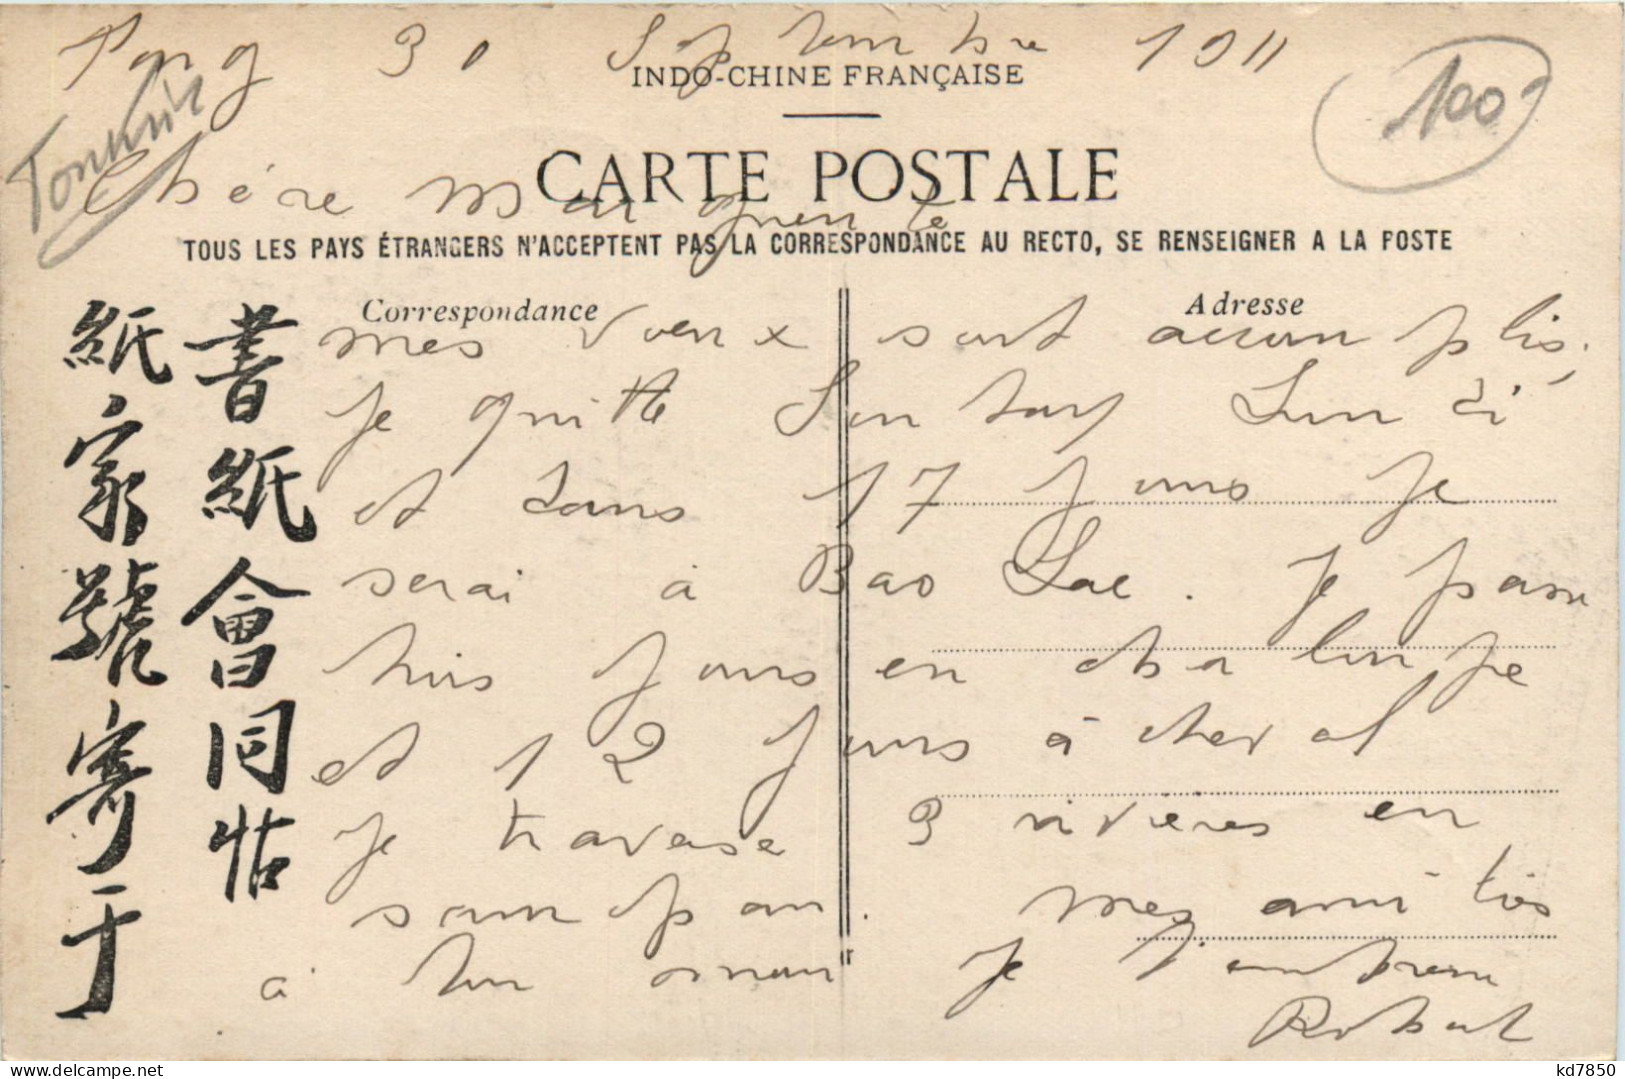 Tong 30 Septembre 1911
INDO-CHINE FRANÇAISE
100
Tonkin
CARTE POSTALE
Chère Marguerite
TOUS LES PAYS ÉTRANGERS N'ACCEPTENT PAS LA CORRESPONDANCE AU RECTO, SE RENSEIGNER A LA POSTE
Correspondance
Adresse
書紙會同帖
紙家號寄于
mes voeux sont accomplis,
Je quitte Sontay Lundi
et dans 17 jours je
serai à Bao Lac. Je passe
trois jours en chaloupe
et 12 jours à cheval
Je traverse 3 rivières en
sampan. mes amitiés
à ton mari Je t'embrasse
Robert
kd7850